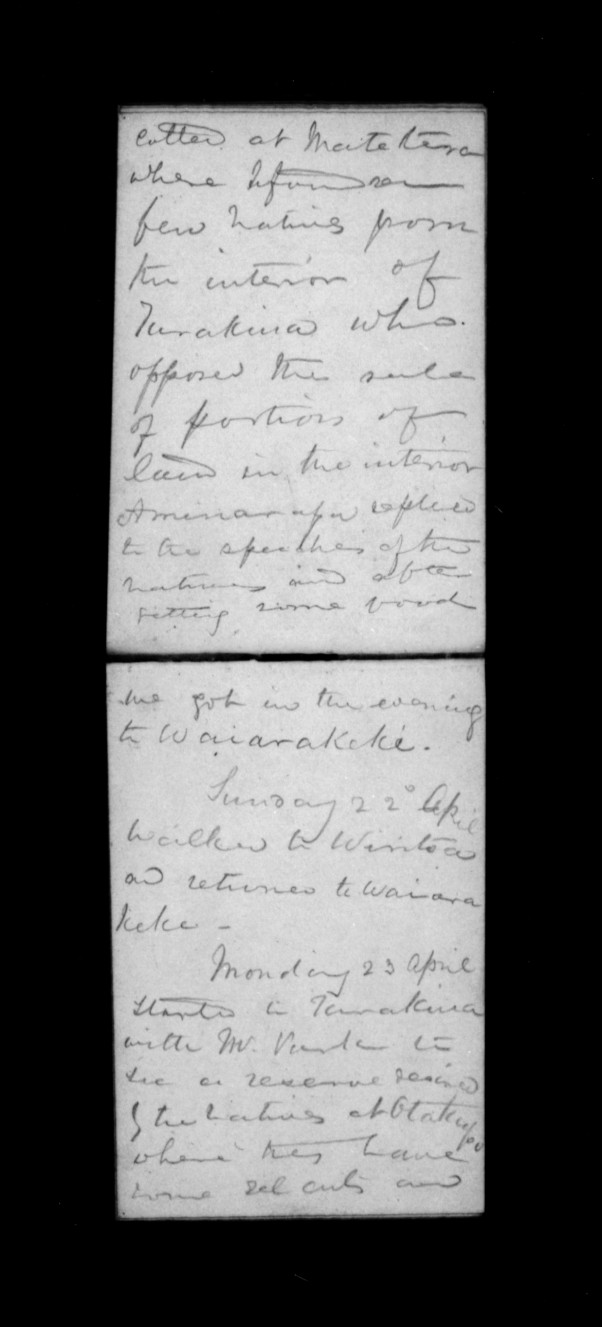 called at Matatera
where I found a
few natives from
the interior of
Turakina who
opposed the sale
of portions of
land in the interior
Aminarapa replied
to the speeches of the
natives and after
getting some food
we got in the evening
to Waiarakeke.
Sunday 22° April
Walked to Wiritoa
and returned to Waiara
keke -
Monday 23 April
started to Turakina
with Mr. Park to
see a reserve desired
by the natives at Otakapo
where they have
some eel cuts and